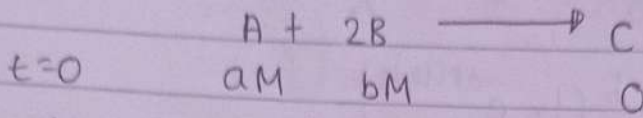 A + 2B ⟶ C
t=0 aM bM 0